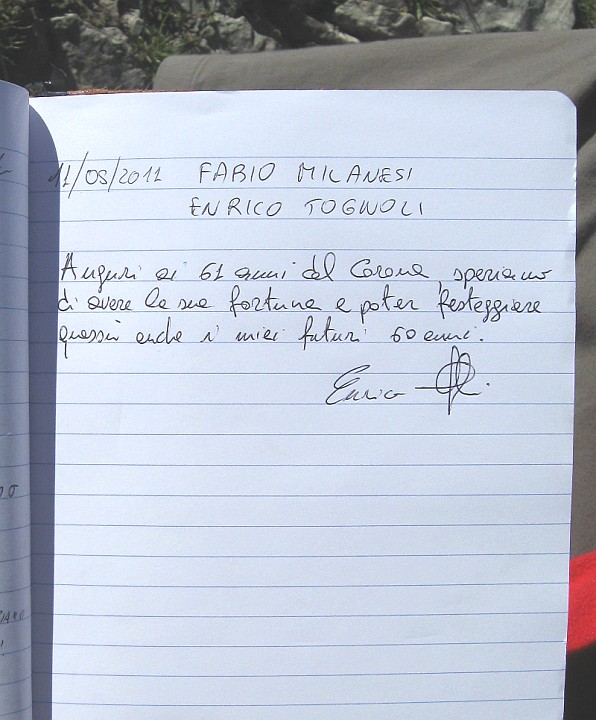 11/08/2011 FABIO MILANESI
ENRICO TOGNOLI
Auguri ai 61 anni del Corona, speriamo
di avere la sua fortuna e poter festeggiare
quassù anche i miei futuri 60 anni.
Enrico